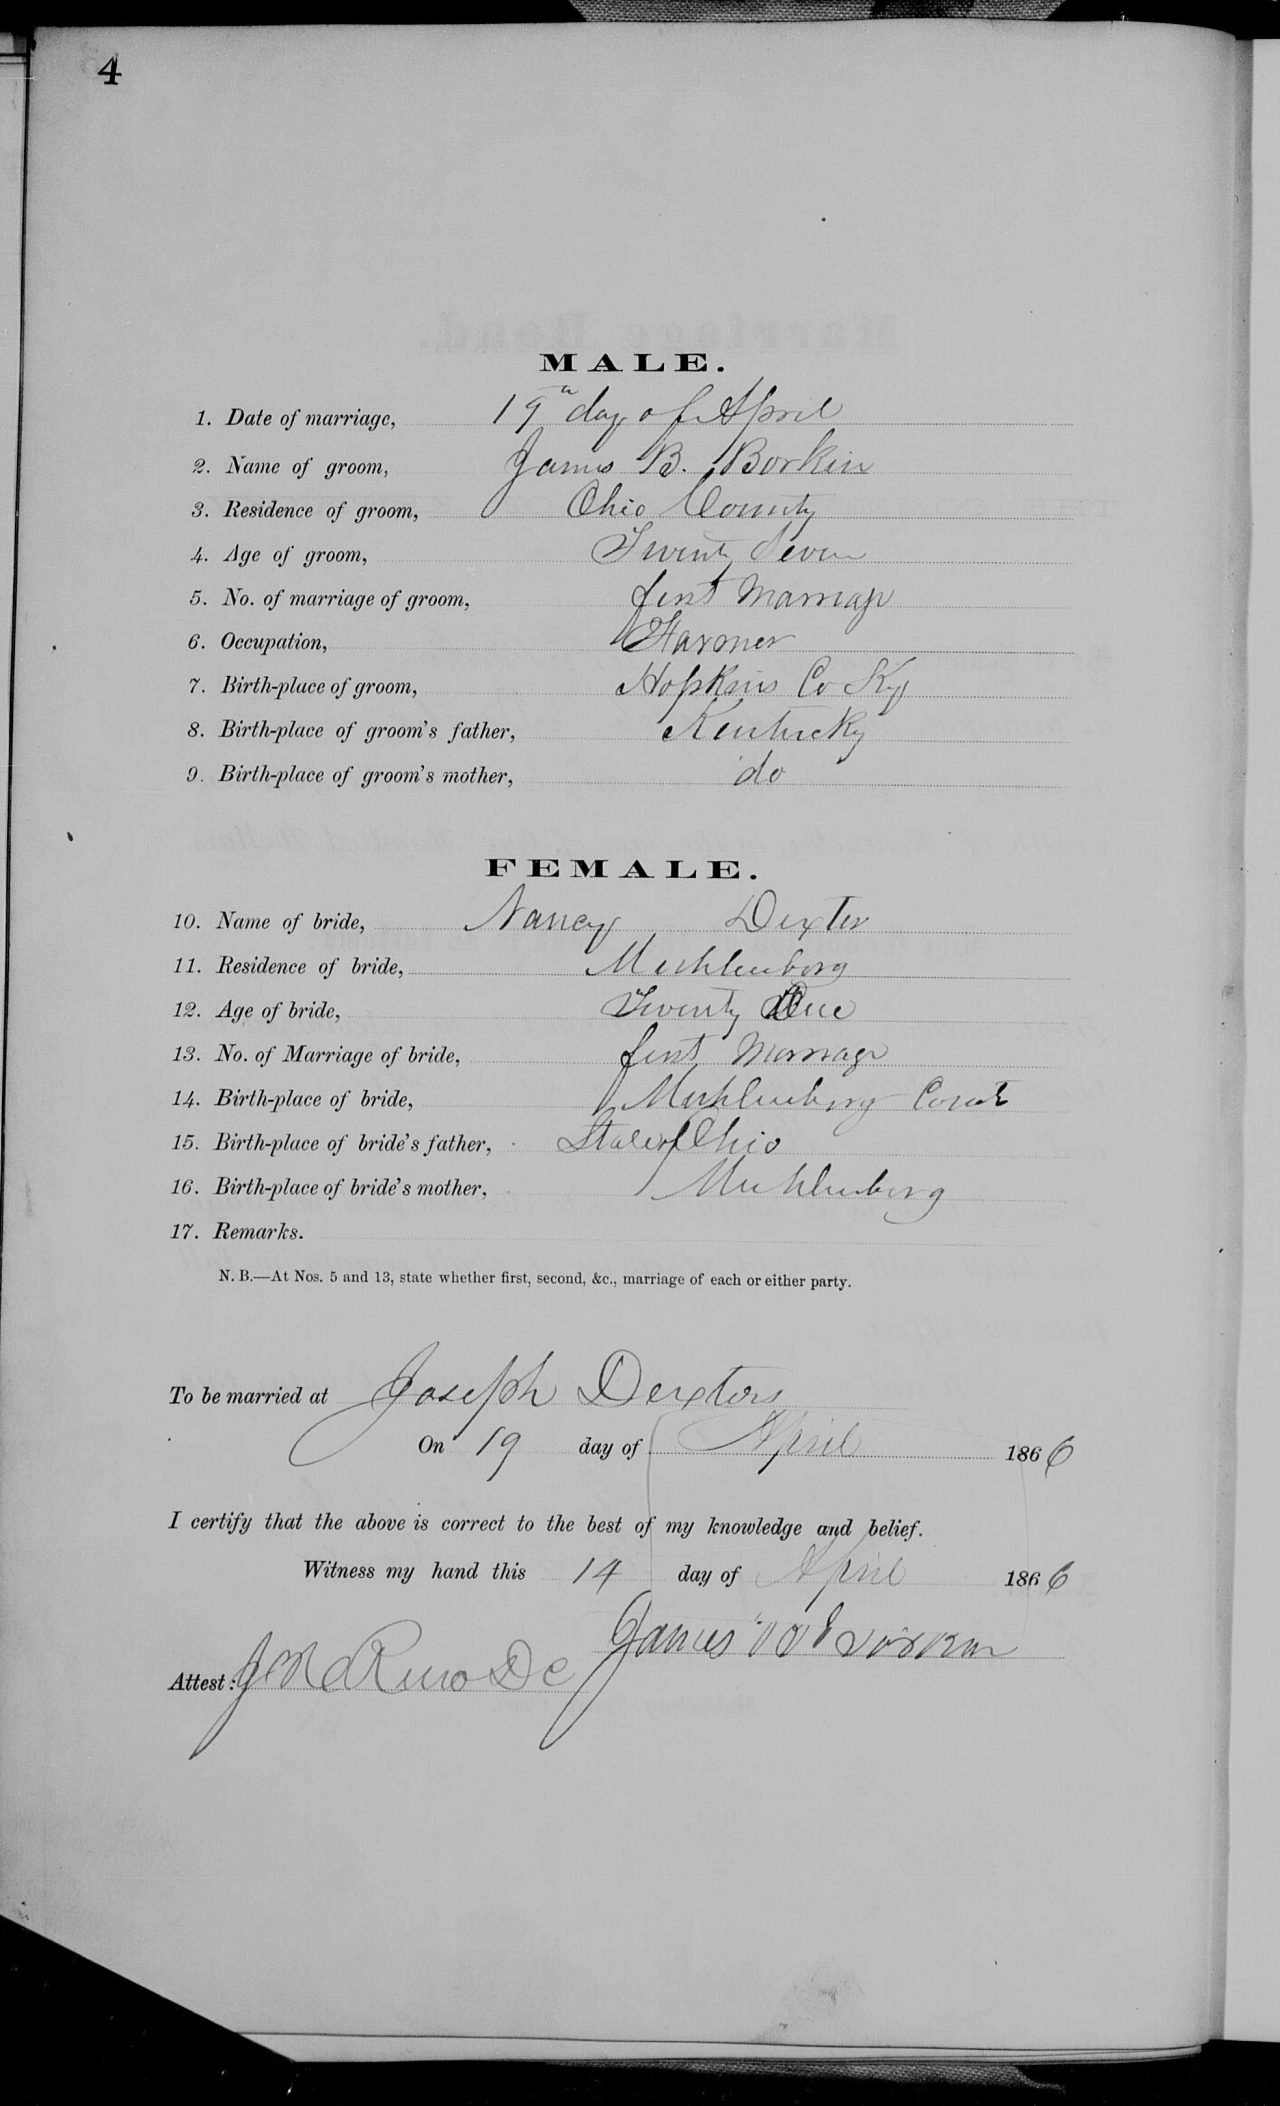 4
MALE.
1. Date of marriage, 19th day of April
2. Name of groom, James B. Borkin
3. Residence of groom, Ohio County
4. Age of groom, Twenty Seven
5. No. of marriage of groom, first Marriage
6. Occupation, Farmer
7. Birth-place of groom, Hopkins Co Ky
8. Birth-place of groom's father, Kentucky
9. Birth-place of groom's mother, do
FEMALE.
10. Name of bride, Nancy Dexter
11. Residence of bride, Muhlenberg
12. Age of bride, Twenty One
13. No. of Marriage of bride, first Marriage
14. Birth-place of bride, Muhlenberg
15. Birth-place of bride's father, State of Ohio
16. Birth-place of bride's mother, Muhlenberg
17. Remarks.
N. B.—At Nos. 5 and 13, state whether first, second, &c., marriage of each or either party.
To be married at Joseph Dexters
On 19 day of April 1866
I certify that the above is correct to the best of my knowledge and belief.
Witness my hand this 14 day of April 1866
James
Attest: